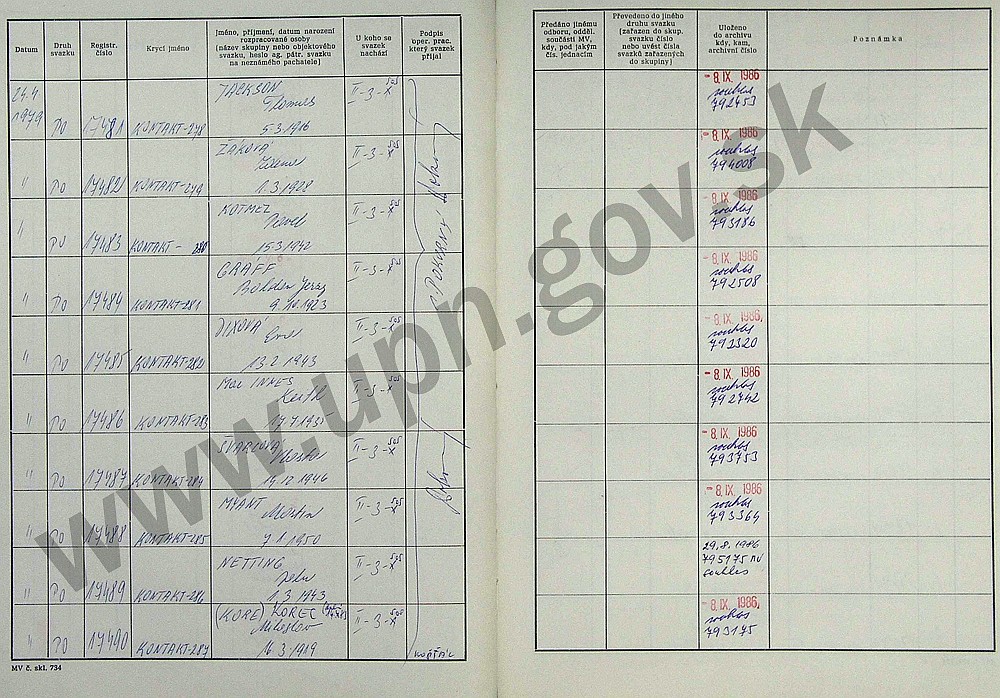 Datum
Druh
svazku
Registr.
číslo
Krycí jméno
Jméno, příjmení, datum narození
rozpracované osoby
(název skupiny nebo objektového
svazku, heslo ag. pátr. svazku
na neznámého pachatele)
U koho se
svazek
nachází
Podpis
oper. prac.
který svazek
přijal
Předáno jinému
odboru, odděl.
součásti MV,
kdy, pod jakým
čís. jednacím
Převedeno do jiného
druhu svazku
(zařazen do skup.
svazku číslo
nebo uvést čísla
svazků zařazených
do skupiny)
Uloženo
do archivu
kdy, kam,
archivní číslo
Poznámka
24.4
1979 PO 17481 KONTAKT-278 JACKSON
Thomas
5.3.1916
II-3-X 505
- 8. IX. 1986
souhlas
792453
" PO 17482 KONTAKT-279 ŽÁKOVÁ
1.3.1928
II-3-X 505
- 8. IX. 1986
souhlas
794008
" PO 17483 KONTAKT-280 KOTMEL
Pavel
15.3.1942
II-3-X 505
- 8. IX. 1986
souhlas
793186
" PO 17484 KONTAKT-281 GRÄFF
9.10.1923
II-3-X 505
- 8. IX. 1986
souhlas
792508
" PO 17485 KONTAKT-282 DIXOVA
13.2.1943
II-3-X 505
- 8. IX. 1986
souhlas
792320
" PO 17486 KONTAKT-283 Mac INNES
Keith
II-3-X 505
- 8. IX. 1986
souhlas
792742
" PO 17487 KONTAKT-284 ŠVARCOVÁ
14.12.1946
II-3-X 505
- 8. IX. 1986
souhlas
793753
" PO 17488 KONTAKT-285 MYANT
Martin
7.1.1950
II-3-X 505
- 8. IX. 1986
souhlas
793364
" PO 17489 KONTAKT-286 NETTING
John
1.3.1943
II-3-X 505
29.8.1986
795175 MV
souhlas
" PO 17490 KONTAKT-287 (KORE) KOREC
Miloslav
16.3.1919
II-3-X 505
- 8. IX. 1986
souhlas
793175
POKORNÝ
KOŠŤÁL
MV č. skl. 734
www.upn.gov.sk